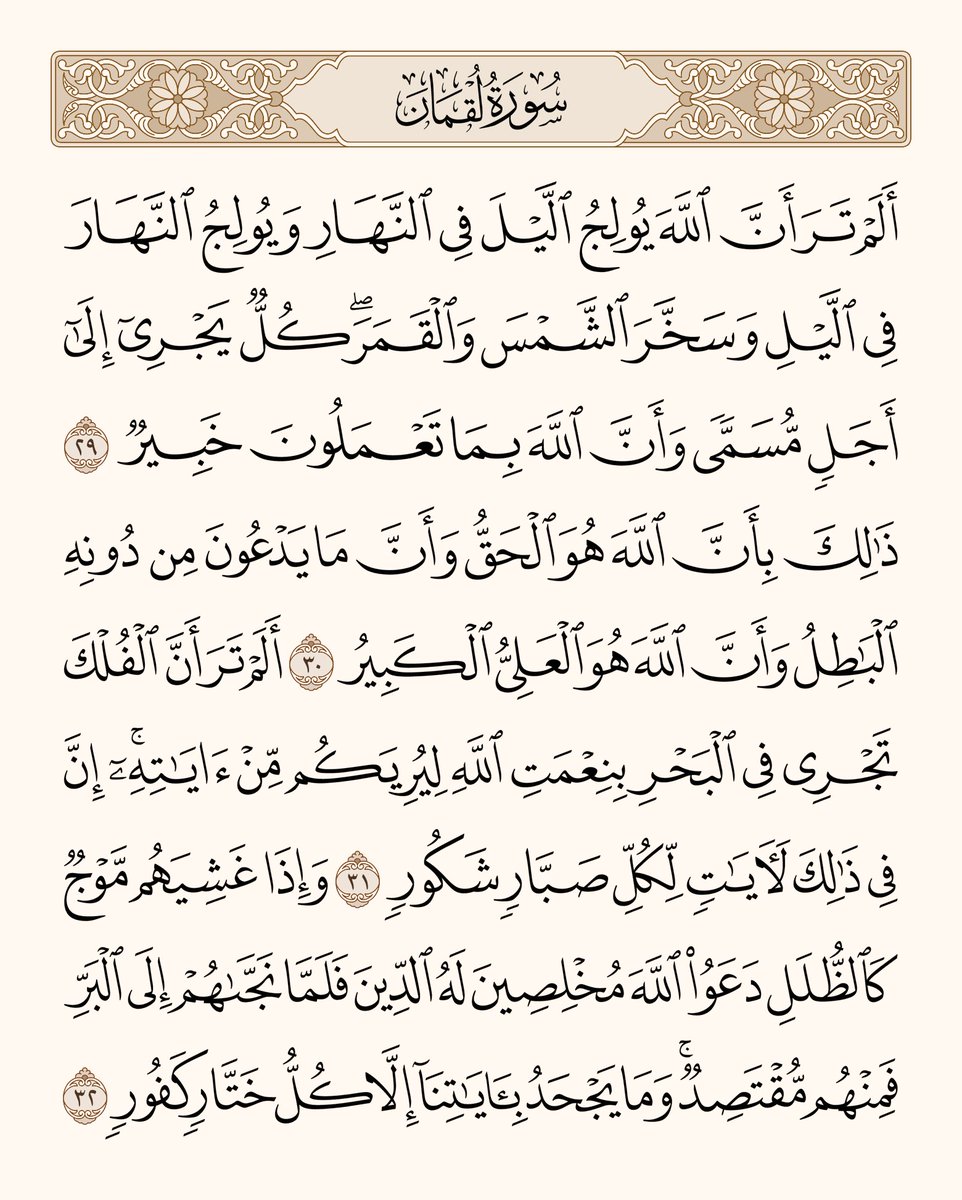 سُورَةُ لُقۡمَانَ
أَلَمۡ تَرَ أَنَّ ٱللَّهَ يُولِجُ ٱلَّيۡلَ فِي ٱلنَّهَارِ وَيُولِجُ ٱلنَّهَارَ
فِي ٱلَّيۡلِ وَسَخَّرَ ٱلشَّمۡسَ وَٱلۡقَمَرَۖ كُلّٞ يَجۡرِيٓ إِلَىٰٓ
أَجَلٖ مُّسَمّٗى وَأَنَّ ٱللَّهَ بِمَا تَعۡمَلُونَ خَبِيرٞ ٢٩
ذَٰلِكَ بِأَنَّ ٱللَّهَ هُوَ ٱلۡحَقُّ وَأَنَّ مَا يَدۡعُونَ مِن دُونِهِ
ٱلۡبَٰطِلُ وَأَنَّ ٱللَّهَ هُوَ ٱلۡعَلِيُّ ٱلۡكَبِيرُ ٣٠ أَلَمۡ تَرَ أَنَّ ٱلۡفُلۡكَ
تَجۡرِي فِي ٱلۡبَحۡرِ بِنِعۡمَتِ ٱللَّهِ لِيُرِيَكُم مِّنۡ ءَايَٰتِهِۦٓۚ إِنَّ
فِي ذَٰلِكَ لَأٓيَٰتٖ لِّكُلِّ صَبَّارٖ شَكُورٖ ٣١ وَإِذَا غَشِيَهُم مَّوۡجٞ
كَٱلظُّلَلِ دَعَوُاْ ٱللَّهَ مُخۡلِصِينَ لَهُ ٱلدِّينَ فَلَمَّا نَجَّىٰهُمۡ إِلَى ٱلۡبَرِّ
فَمِنۡهُم مُّقۡتَصِدٞۚ وَمَا يَجۡحَدُ بِـَٔايَٰتِنَآ إِلَّا كُلُّ خَتَّارٖ كَفُورٖ ٣٢